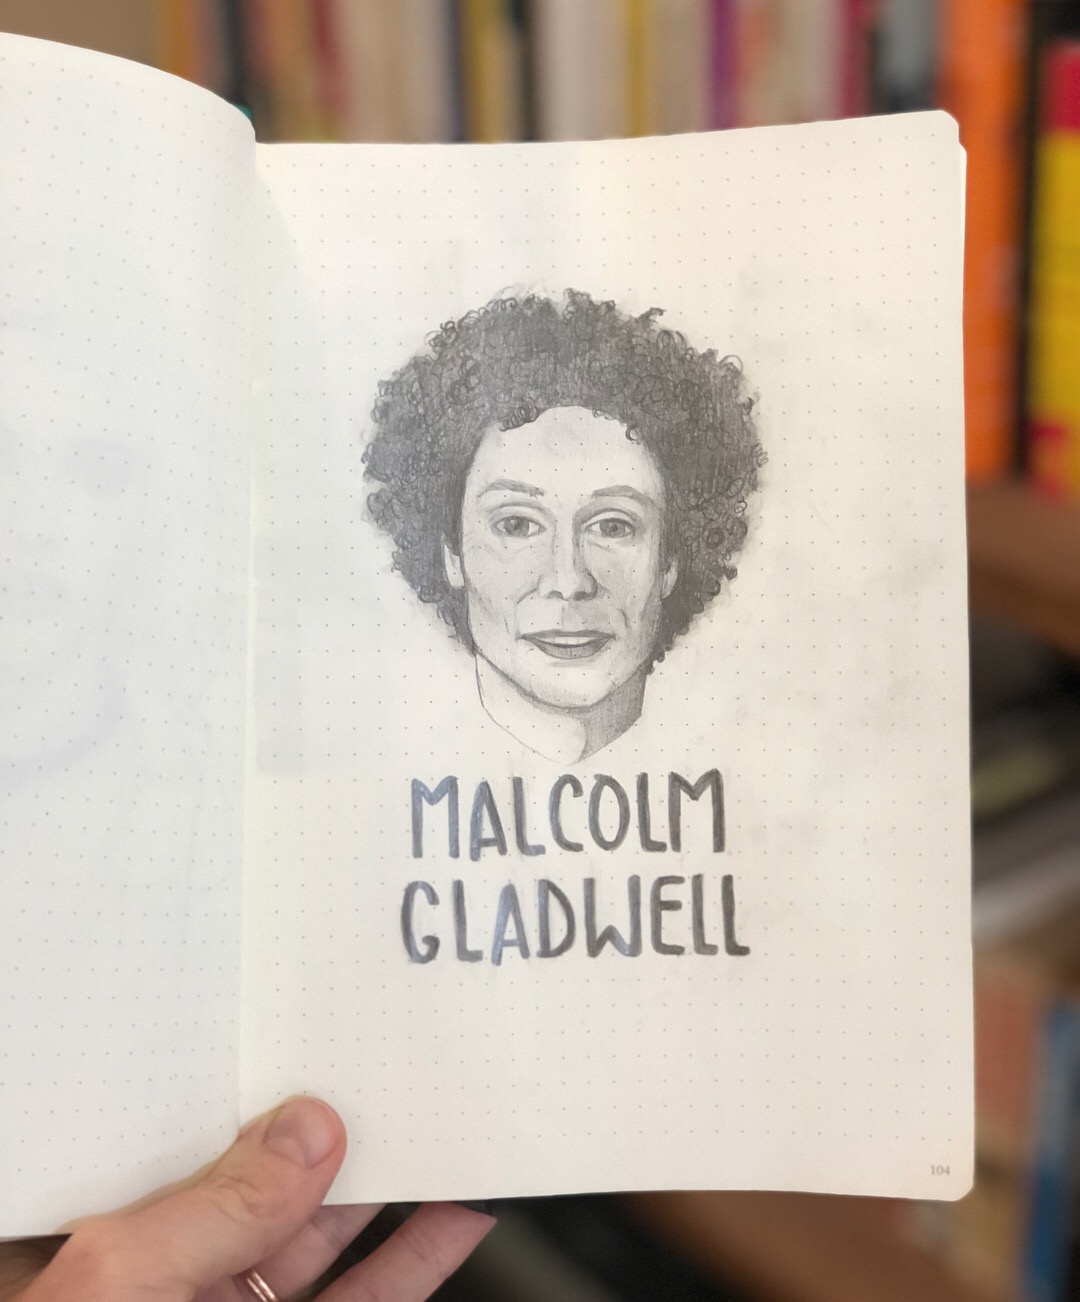 MALCOLM
GLADWELL
104